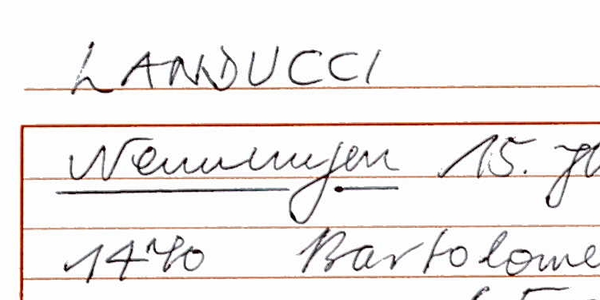 LANDUCCI
Nennungen 15. Jh
1470 Bartolome